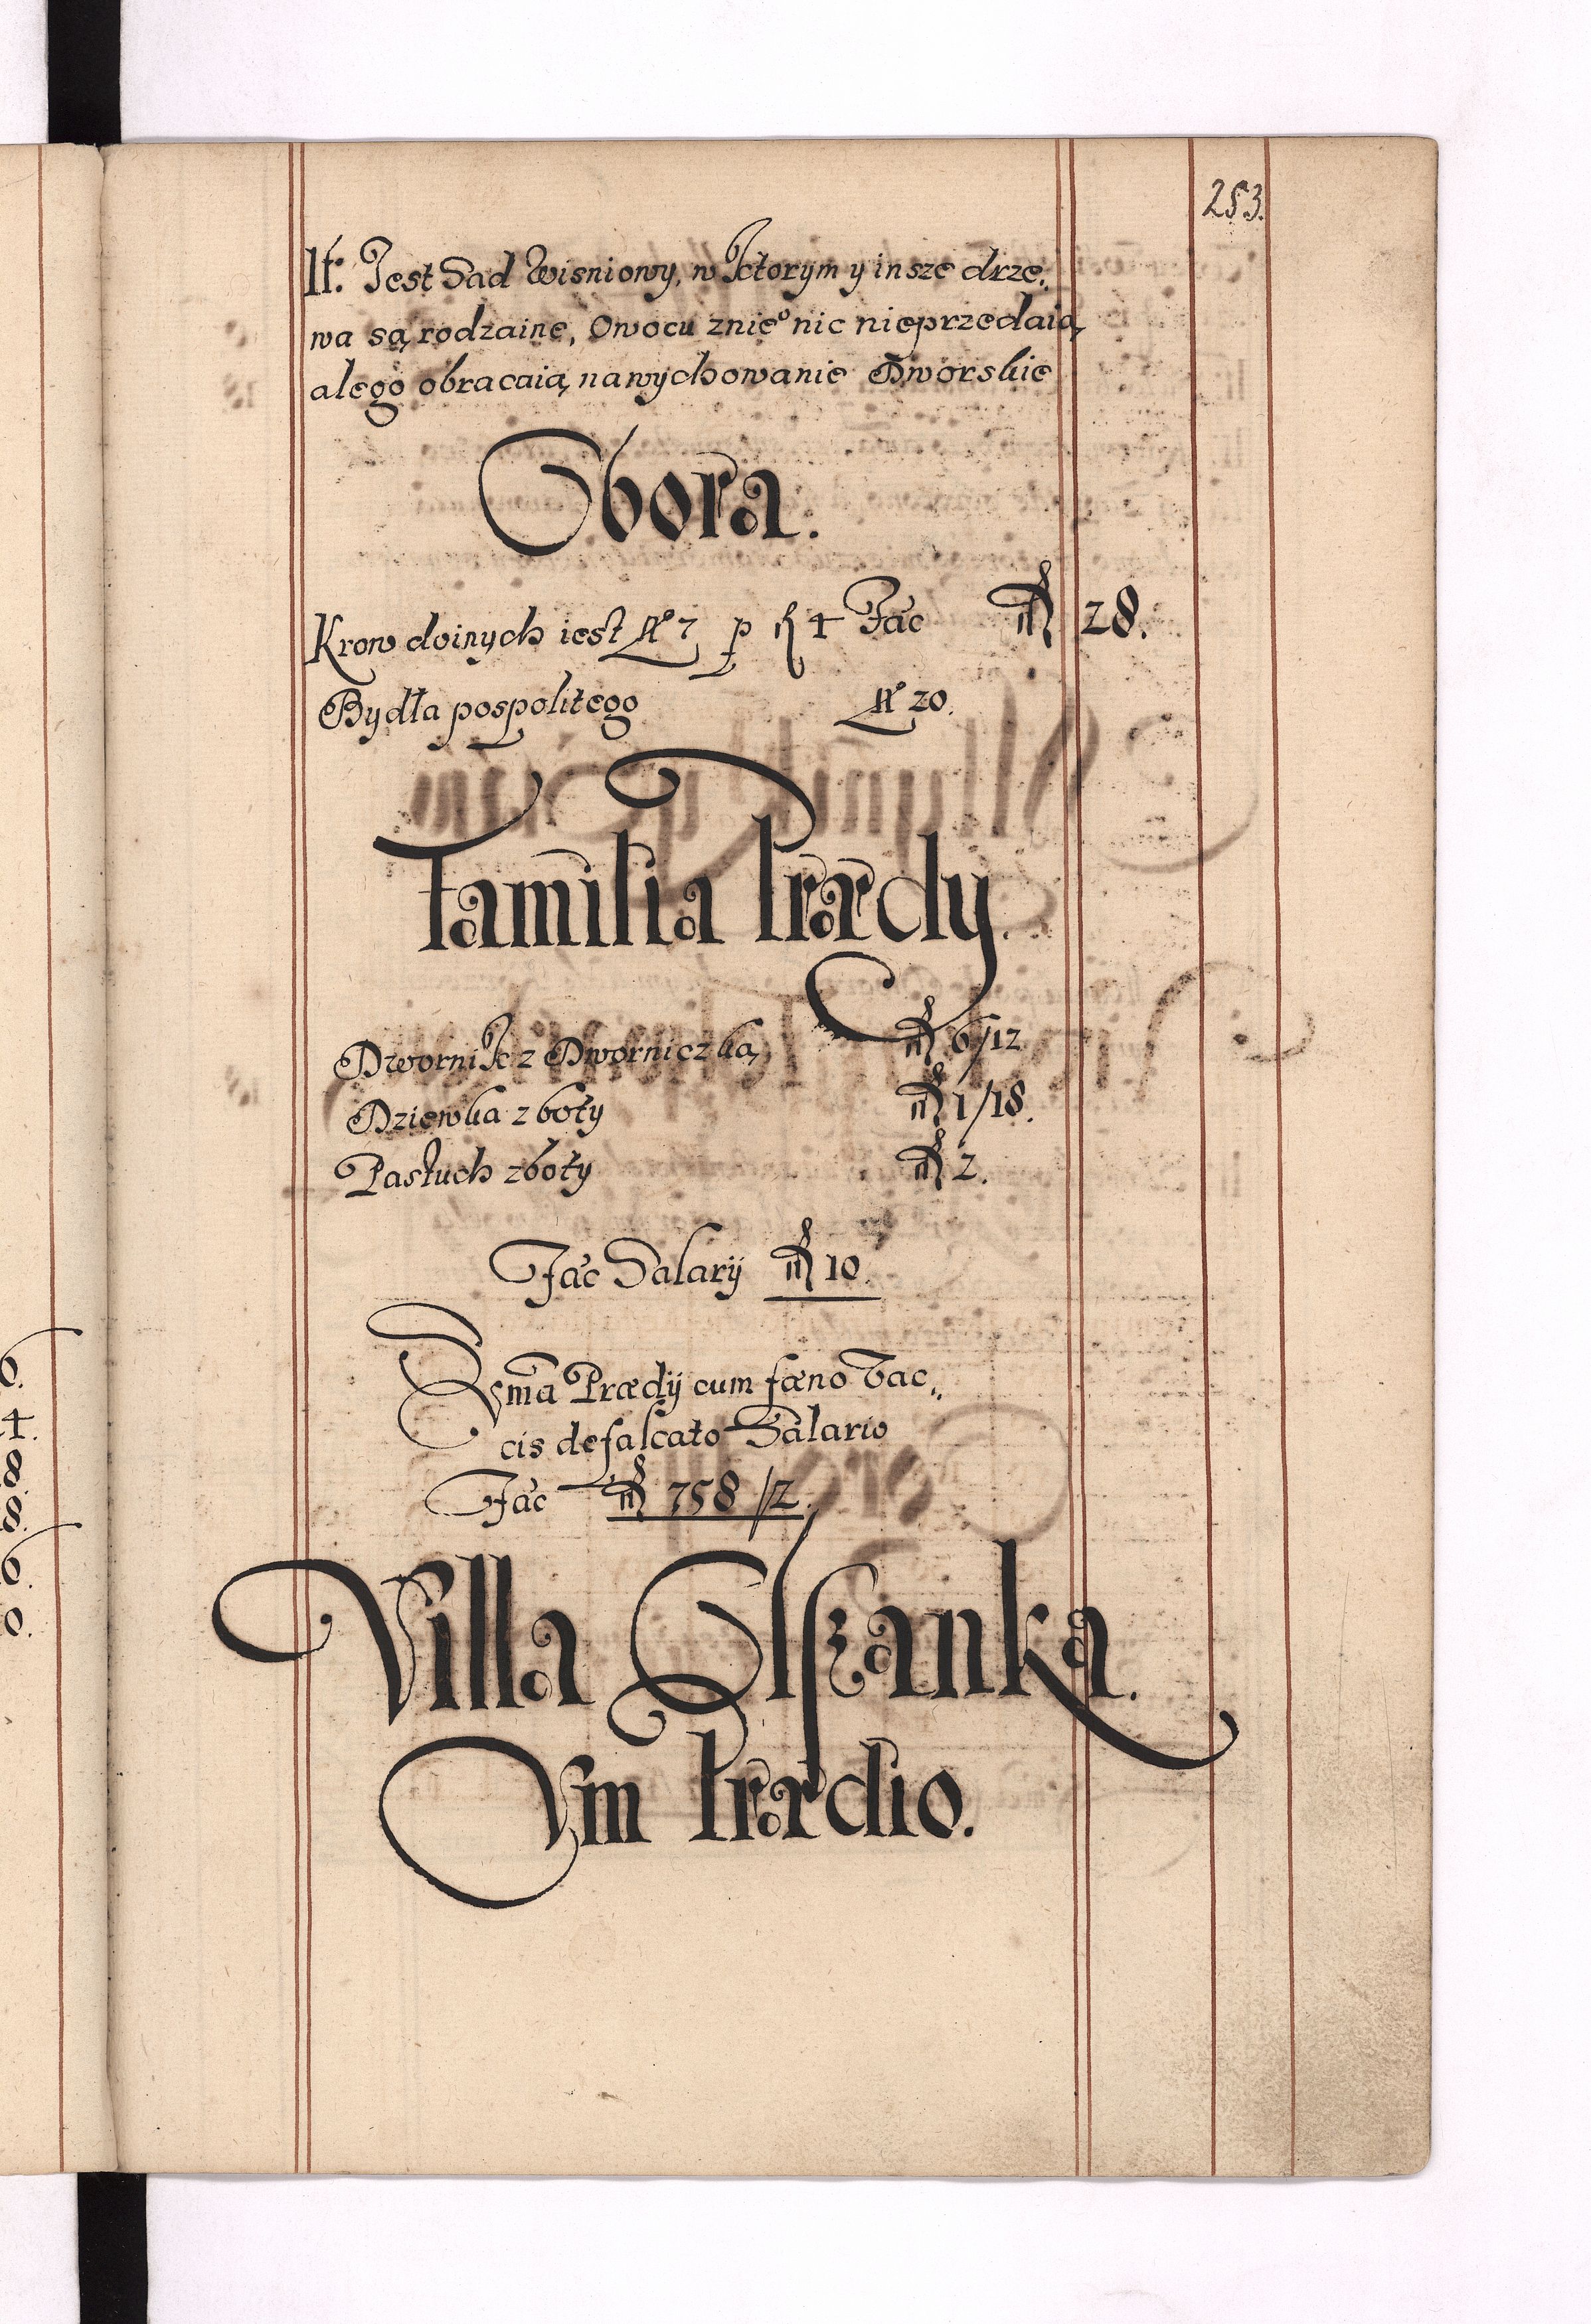 253.
It: Jest Sad Wisniowy, w ktorym y insze drze,
wa są rodzaine, Owocu znieº nic nieprzedaią
alego obracaią nawychowanie Dworskie
Obora.
Krow doinych iest Nº 7 p fl 4 Fac fl 28.
Bydła pospolitego Nº 20.
Familia Prædy.
Dwornik z Dworniczką fl 6/12
Dziewka z boty fl 1/18.
Pastuch zboty fl 2.
Fac Salarij fl 10.
Sma Prædij cum fæno Tac,,
cis defalcato Salario
Fac fl 758 /2.
Villa Olszanka.
Cum Prædio.